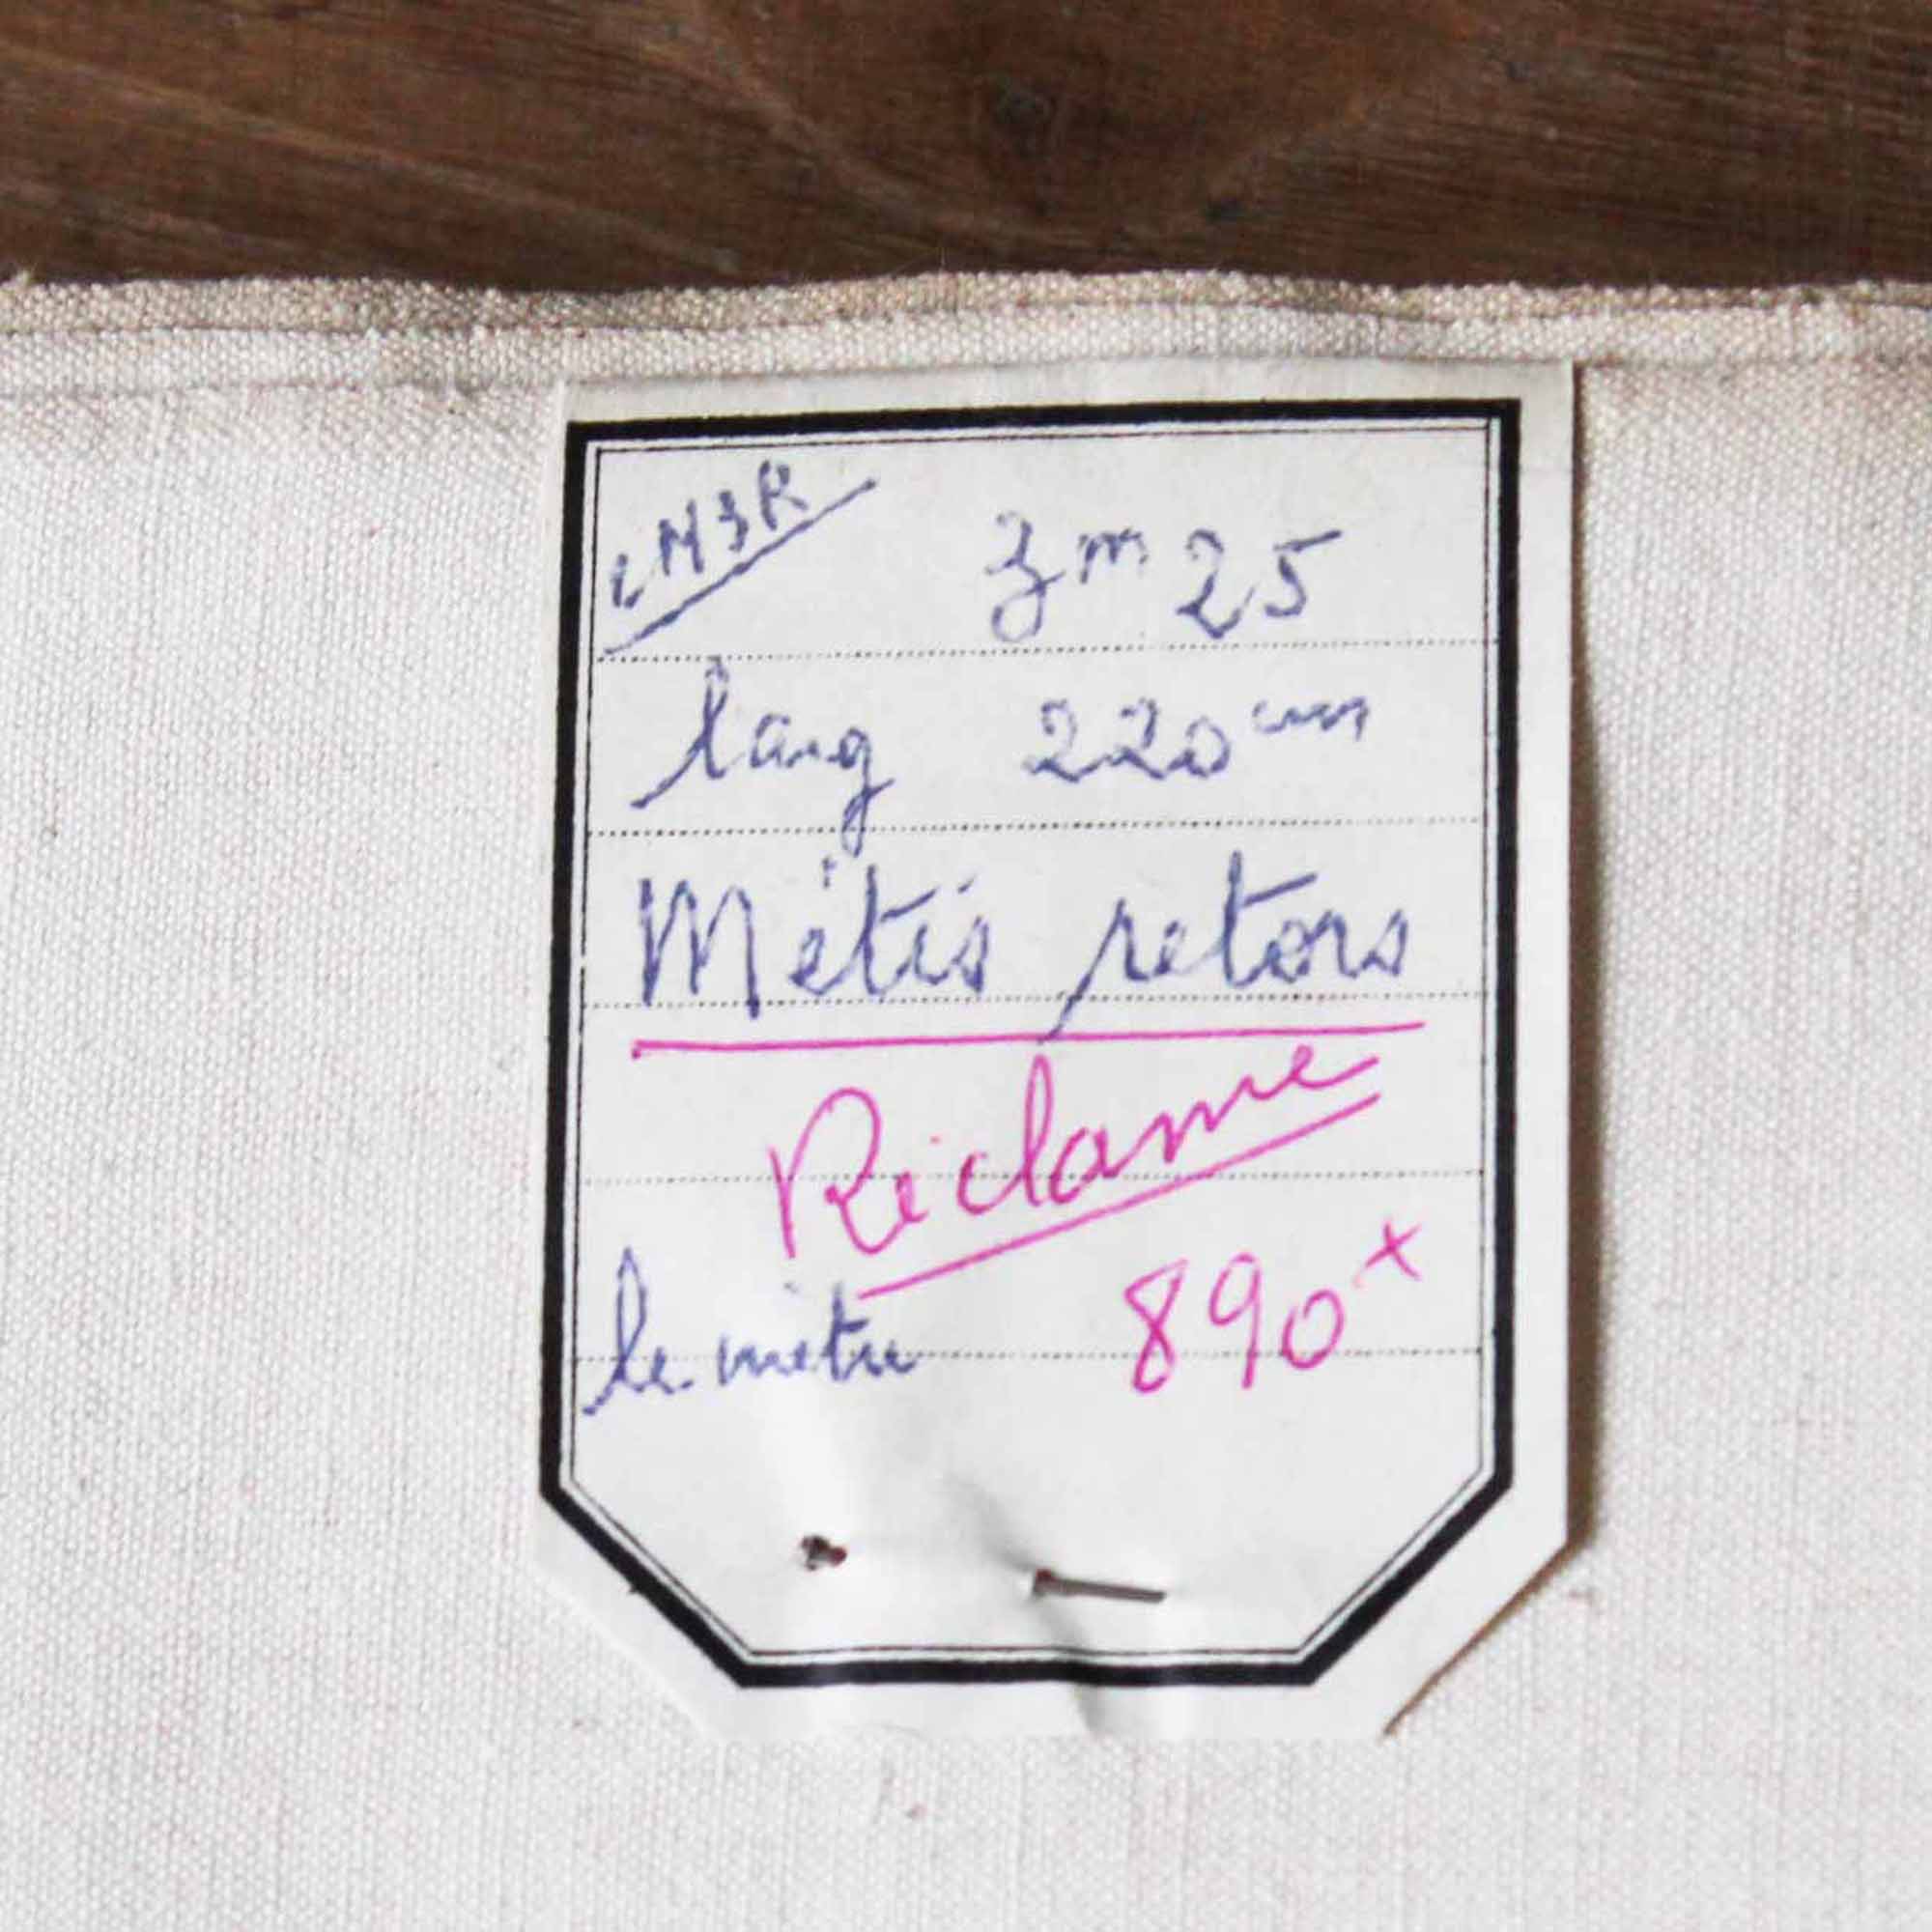 3m 25
larg 220 cm
Métis retors
Réclame
le mètre 890